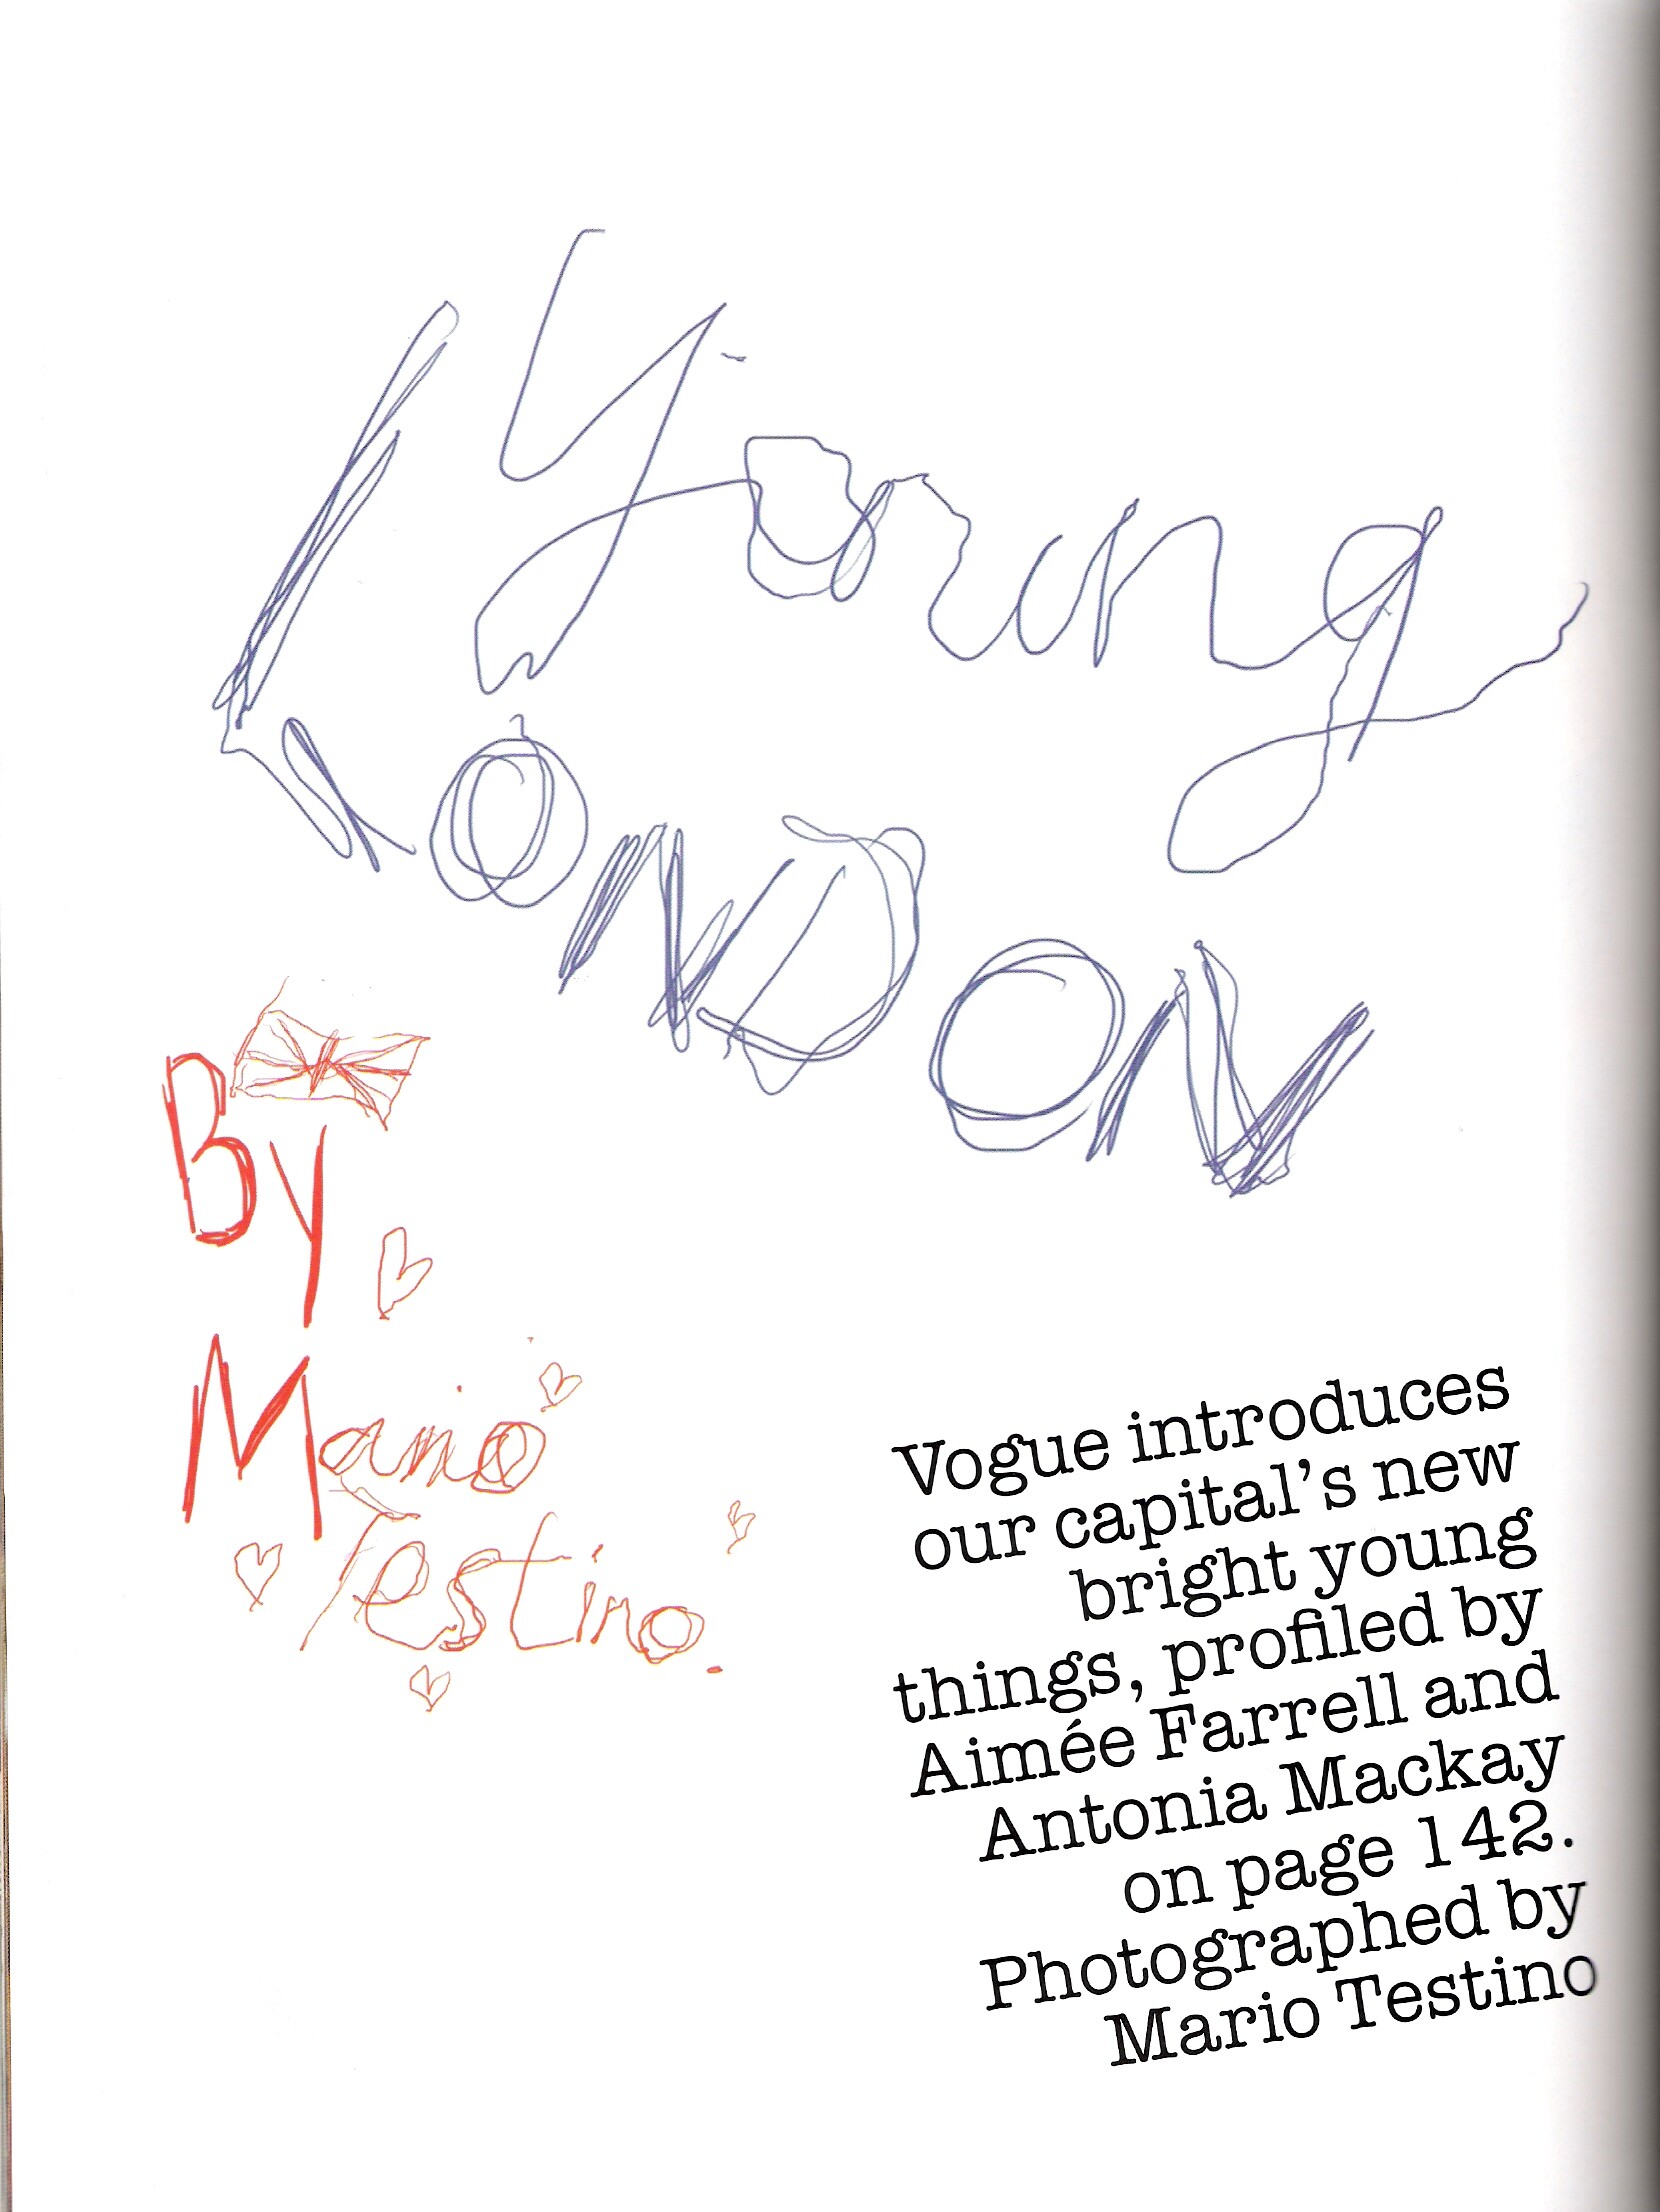 Young
LONDON
By
Mario
Testino.
Vogue introduces
our capital’s new
bright young
things, profiled by
Aimée Farrell and
Antonia Mackay
on page 142.
Photographed by
Mario Testino